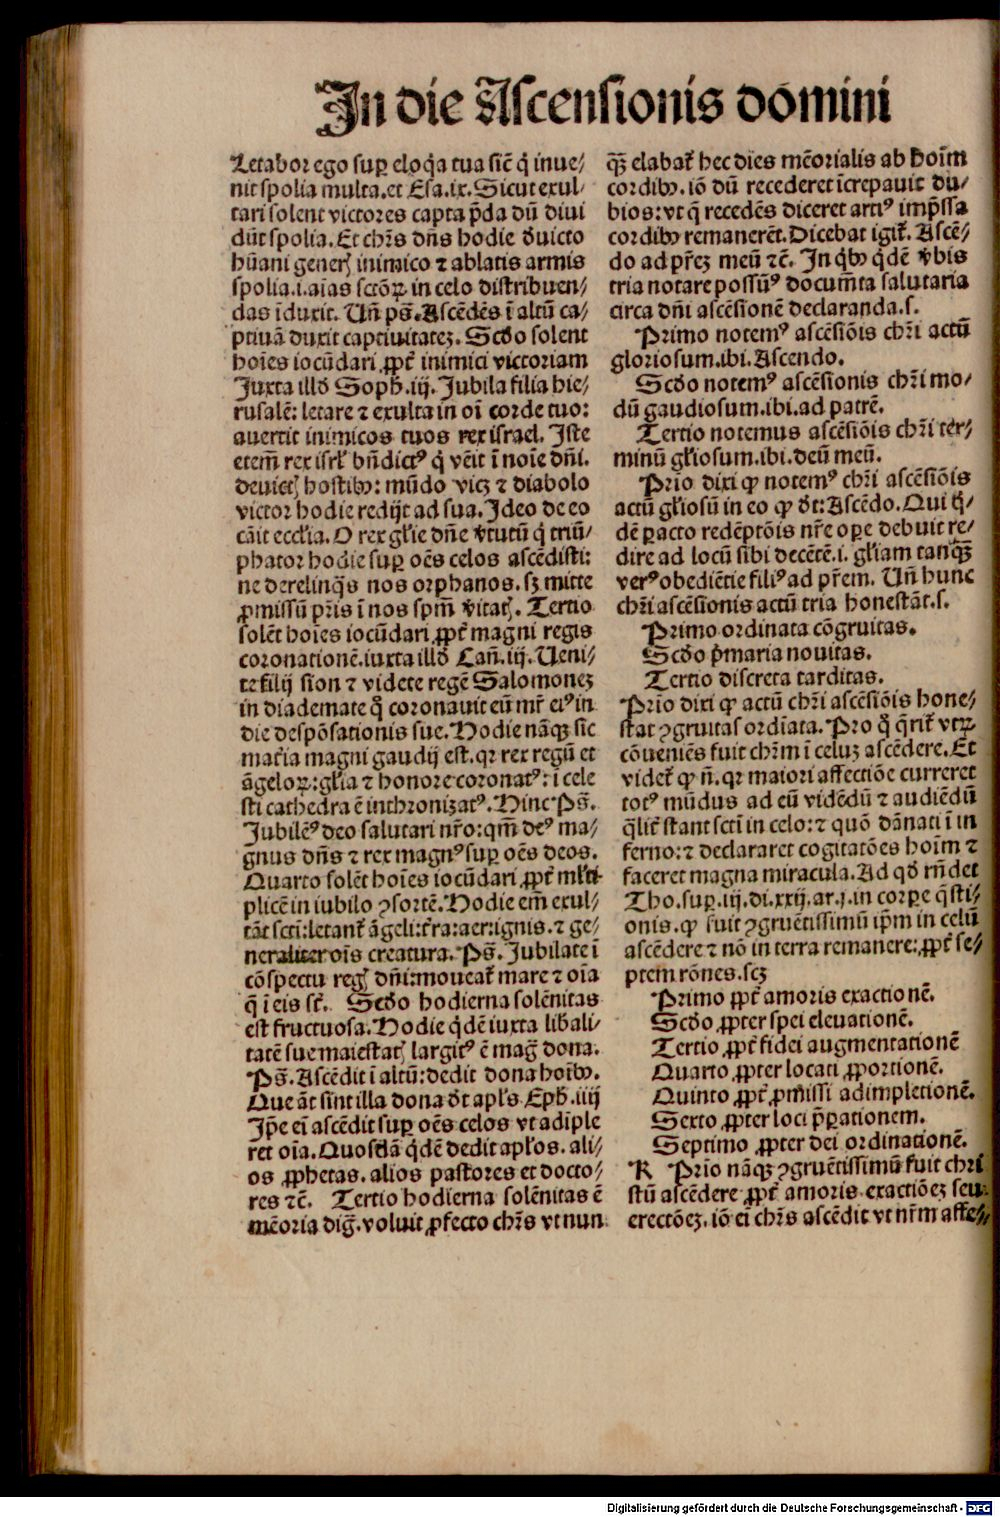 In die Ascensionis dñi domini
Letabor ego suꝑ eloq̃a tua sic̃ q̇ inue/
nit spolia multa.et Esa.ix.Sicut exul/
tari solent victores capta p̃da dũ diui
dũt spolia.Et chr̃s dñs hodie deuicto
hũani generꝭ inimico ⁊ ablatis armis
spolia.i.aĩas sctõꝝ in celo distribuen/
das ĩduxit. Uñ ps̃.Ascẽdẽs ĩ altũ ca/
ptiuã duxit captiuitatez. Scđo solent
hoĩes iocũdari ꝓpt̃ inimici victoriam
Juxta illđ Soph.iij. Jubila filia hie/
rusalẽ: letare ⁊ exulta in oĩ corde tuo:
auertit inimicos tuos rex israel. Iste
etem̃ rex isrl̃ bñdictꝰ q̇ vẽit ĩ noĩe dñi.
deuictꝭ hostibꝰ: mũdo victꝫ ⁊ diabolo
victor hodie redijt ad sua. Ideo de eo
cãit eccl̃ia. O rex gl̃ie dñe v̾tutũ q̇ triũ/
phator hodie suꝑ oẽs celos ascẽdisti:
ne derelinq̃s nos orphanos. sꝫ mitte
ꝓmissũ pr̃is ĩ nos spm̃ v̾itatꝭ. Tertio
solẽt hoĩes iocũdari ꝓpt̃ magni regis
coronationẽ.iuxta illđ Cañ.iij. Ueni/
te filij sion ⁊ videte regẽ Salomonez
in diademate q̊ coronauit eũ mr̃ eiꝰ in
die despõsationis sue. Hodie nãqꝫ sic
mat̃ia magni gaudij est. qr rex regũ et
ãgeloꝝ:gl̃ia ⁊ honore coronatꝰ: ĩ cele
sti cathedra ẽ inthronizatꝰ. Hinc Ps̃.
Jubilẽꝰ deo salutari nr̃o:qm̃ deꝰ ma/
gnus dñs ⁊ rex magnꝰ suꝑ oẽs deos.
Quarto solẽt hoĩes iocũdari ꝓpt̃ ml̃ti
plicẽ in iubilo ꝯsortẽ. Hodie em̃ exul/
tãt scti:letant̃ ãgeli:t̃ra:aer:ignis.⁊ ge/
neraliter oĩs creatura. Ps̃. Jubilate ĩ
cõspectu regꝭ dñi:moueat̃ mare ⁊ oĩa
q̃ ĩ eis st̃. Scđo hodierna solẽnitas
est fructuosa. Hodie q̇dẽ iuxta lib̾ali/
tatẽ sue maiestatꝭ largitꝰ ẽ mag̃ dona.
Ps̃. Ascẽdit ĩ altũ: dedit dona hoĩbꝰ.
Que ãt sint illa dona đt apl̃s Eph̃.iiij
Ip̃e ei ascẽdit suꝑ oẽs celos vt adĩple
ret oĩa. Quosdã q̇dẽ dedit apl̃os. ali/
os ꝓphetas. alios pastores et docto/
res ⁊c̃. Tertio hodierna solẽnitas ẽ
mẽoria dig̃. voluit ꝓfecto chr̃s vt nun
qꝫ̃ elabat̃ hec dies mẽorialis ab hoĩm
cordibꝰ. iõ dũ recederet ĩcrepauit du/
bios: vt q̃ recedẽs diceret artiꝰ imp̃ssa
cordibꝰ remanerẽt. Dicebat igit̃. Ascẽ/
do ad pr̃ez meũ ⁊c̃. In q̇bꝰ q̇dẽ v̾bis
tria notare possũꝰ documẽta salutaria
circa dñi ascẽsionẽ declaranda.s.
Primo notemꝰ ascẽsiõis chr̃i actũ
gloriosum.ibi.Ascendo.
Scđo notemꝰ ascẽsionis chr̃i mo/
dũ gaudiosum.ibi.ad patrẽ.
Tertio notemus ascẽsiõis chr̃i ter/
minũ gl̃iosum.ibi.deũ meũ.
Prĩo dixi ꝙ notemꝰ chr̃i ascẽsiõis
actũ gl̃iosũ in eo ꝙ đt: Ascẽdo. Qui q̇/
dẽ ꝑacto redẽptõis nr̃e oꝑe debuit re/
dire ad locũ sibi decẽtẽ.i. gl̃iam tanqꝫ̃
verꝰ obediẽtie filiꝰ ad pr̃em. Uñ hunc
chr̃i ascẽsionis actũ tria honestãt.s.
Primo ordinata cõgruitas.
Scđo ṗmaria nouitas.
Tertio discreta tarditas.
Prĩo dixi ꝙ actũ chr̃i ascẽsiõis hone/
stat ꝯgruitas ordĩata. Pro q̊ q̃rit̃ vtꝝ
cõueniẽs fuit chr̃m ĩ celuz ascẽdere. Et
videt̃ ꝙ ñ. qr maiori affectiõe curreret
totꝰ mũdus ad eũ vidẽdũ ⁊ audiẽdũ
q̃lit̃ stant scti in celo: ⁊ quõ dãnati ĩ in
ferno: ⁊ declararet cogitatões hoĩm ⁊
faceret magna miracula. Ad qđ rñdet
Tho.suꝑ.iij.di.xxij.ar.j.in corꝑe q̃sti/
onis. ꝙ fuit ꝯgruẽtissimũ ip̃m in celũ
ascẽdere ⁊ nõ in terra remanere: ꝓpt̃ se/
ptem rõnes. scꝫ
Primo ꝓpt̃ amoris exactionẽ.
Scđo ꝓpter spei eleuationẽ.
Tertio ꝓpt̃ fidei augmentationẽ
Quarto ꝓpter locati ꝓportionẽ.
Quinto ꝓpt̃ ꝓmissi adimpletionẽ.
Sexto ꝓpter loci p̃ꝑationem.
Septimo ꝓpter dei ordinationẽ.
R Prĩo nãqꝫ ꝯgruẽtissimũ fuit chri
stũ ascẽdere ꝓpt̃ amoris exactiõez seu
erectõez. iõ ei chr̃s ascẽdit vt nr̃m affe/
Digitalisierung gefördert durch die Deutsche Forschungsgemeinschaft - DFG